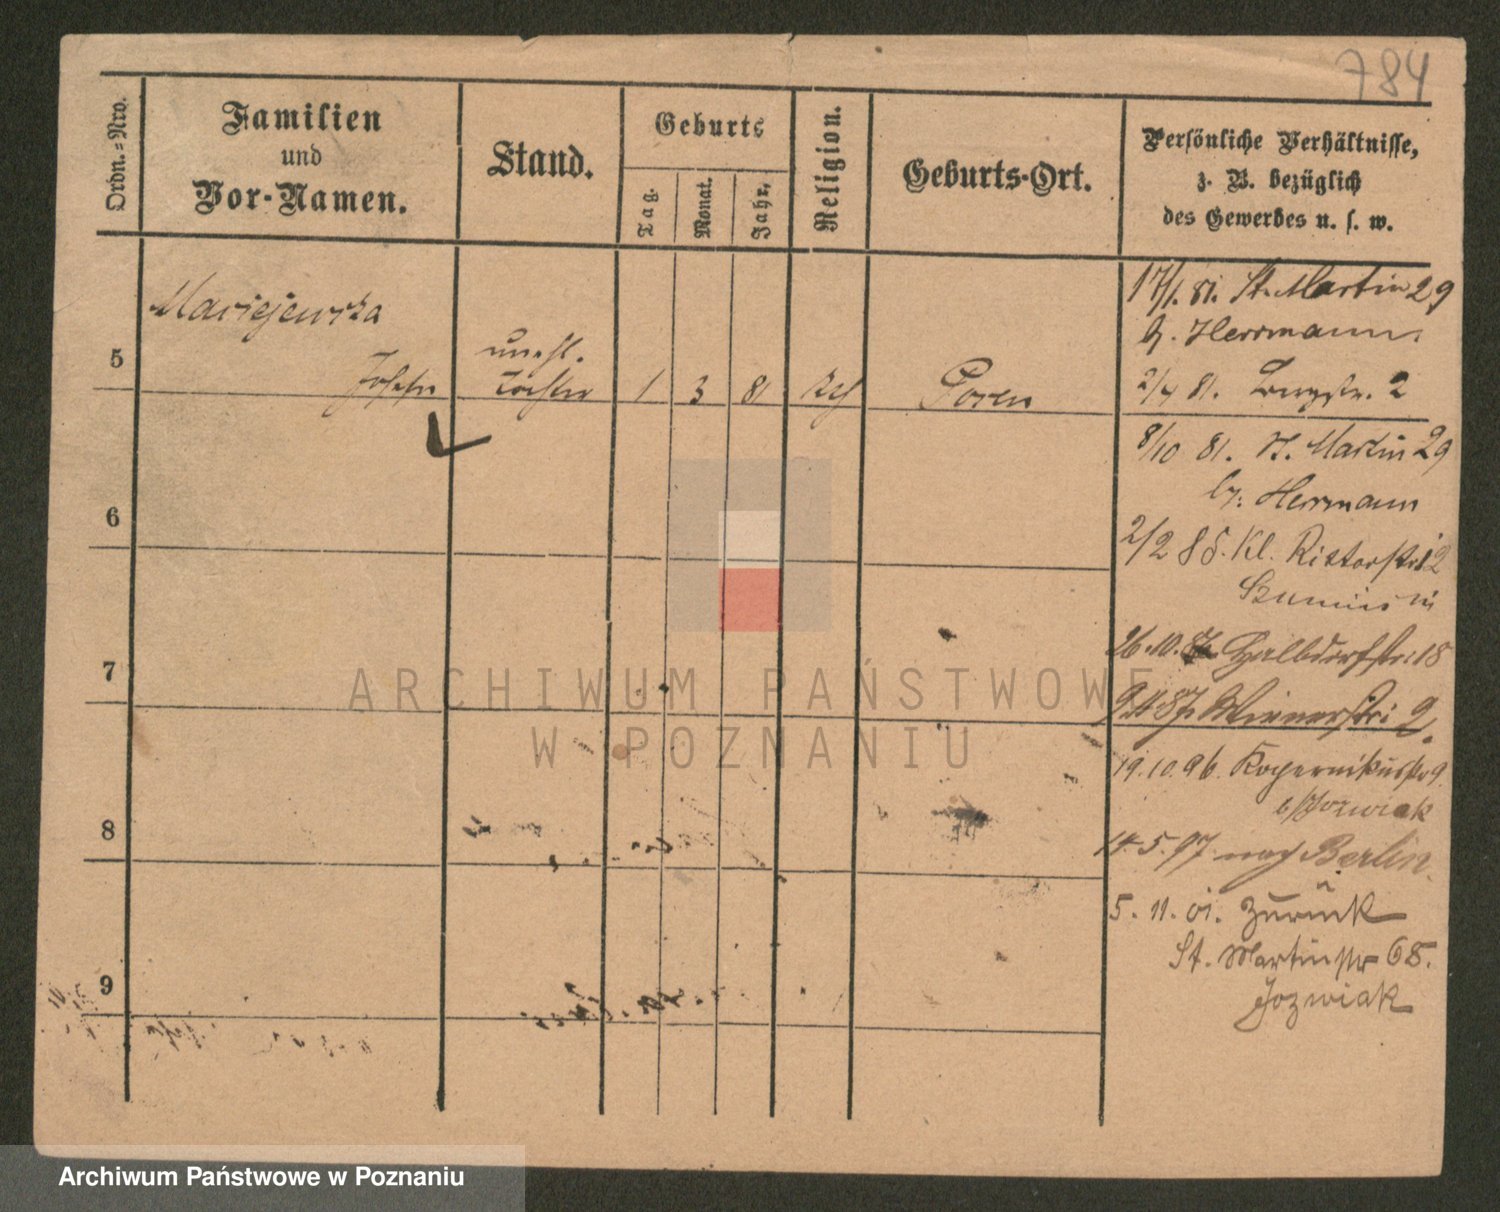 784
Ordn.=Nro.
Familien
und
Vor-Namen.
Stand.
Geburts
Tag.
Monat.
Jahr.
Religion.
Geburts-Ort.
Persönliche Verhältnisse,
z. B. bezüglich
des Gewerbes u. s. w.
5
Maciejewska
unehl.
Tochter
1 3 81
Posen
17/1. 81. St. Martin 29
b. Herrmann.
2/4 81. 2
8/10 81. St. Martin 29
b. Herrmann
2/2 85. Kl. Ritterstr. 12
26.10. Halbdorfstr. 18
87. Wienerstr. 2.
19.10.96. Kopernikusstr 9
b/Jozwiak
14.5.97 nach Berlin.
5. 11. 01. zurück
St. Martinstr 68.
Jozwiak
6
7
8
9
ARCHIWUM PAŃSTWOWE
W POZNANIU
Archiwum Państwowe w Poznaniu